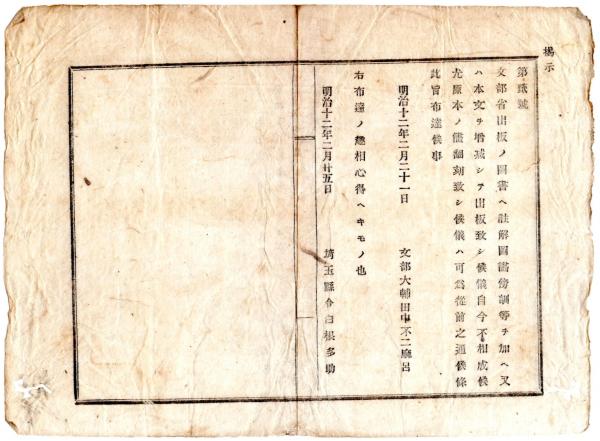 掲示
第貳號
文部省出版ノ圖書ヘ註解圖譜傍訓等ヲ加ヘ又
ハ本文ヲ増減シテ出板致シ候儀自今不相成候
尤原本ノ儘翻刻致シ候儀ハ可爲從前之通候條
此旨布達候事
明治十二年二月二十一日 文部大輔田中不二麿呂
右布達ノ趣相心得ヘキモノ也
明治十二年二月廿五日 埼玉縣令白根多助